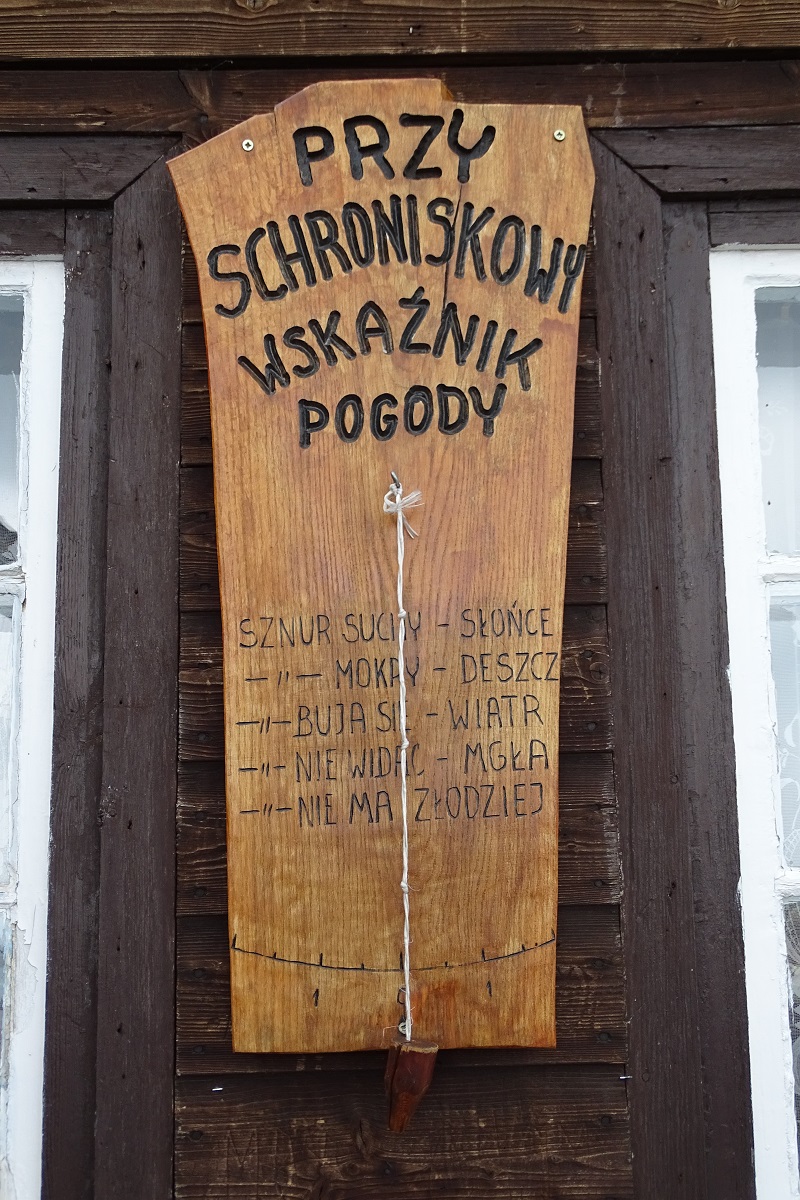 PRZY
SCHRONISKOWY
WSKAŹNIK
POGODY
SZNUR SUCHY - SŁOŃCE
—〃— MOKRY - DESZCZ
—〃— BUJA SIĘ - WIATR
—〃— NIE WIDAĆ - MGŁA
—〃— NIE MA ZŁODZIEJ
1 0 1